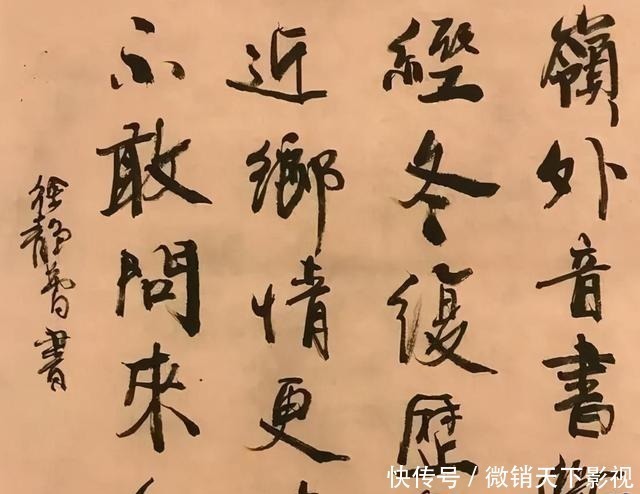 嶺外音書
經冬復歷
近鄉情更
不敢問來
徐靜蕾書
快传号／微销天下影视